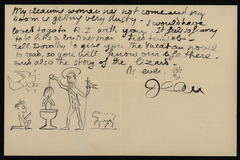 My cleaning woman has not come and my
room is getting very dusty - I would have
loved to go to R. I with you. It feels so funny
to be like a business man tied to a job -
tell Dorothy to give you the Yucatan novel
to read, so you will know our life there -
and also the story of the lizard.
As ever,
Jean